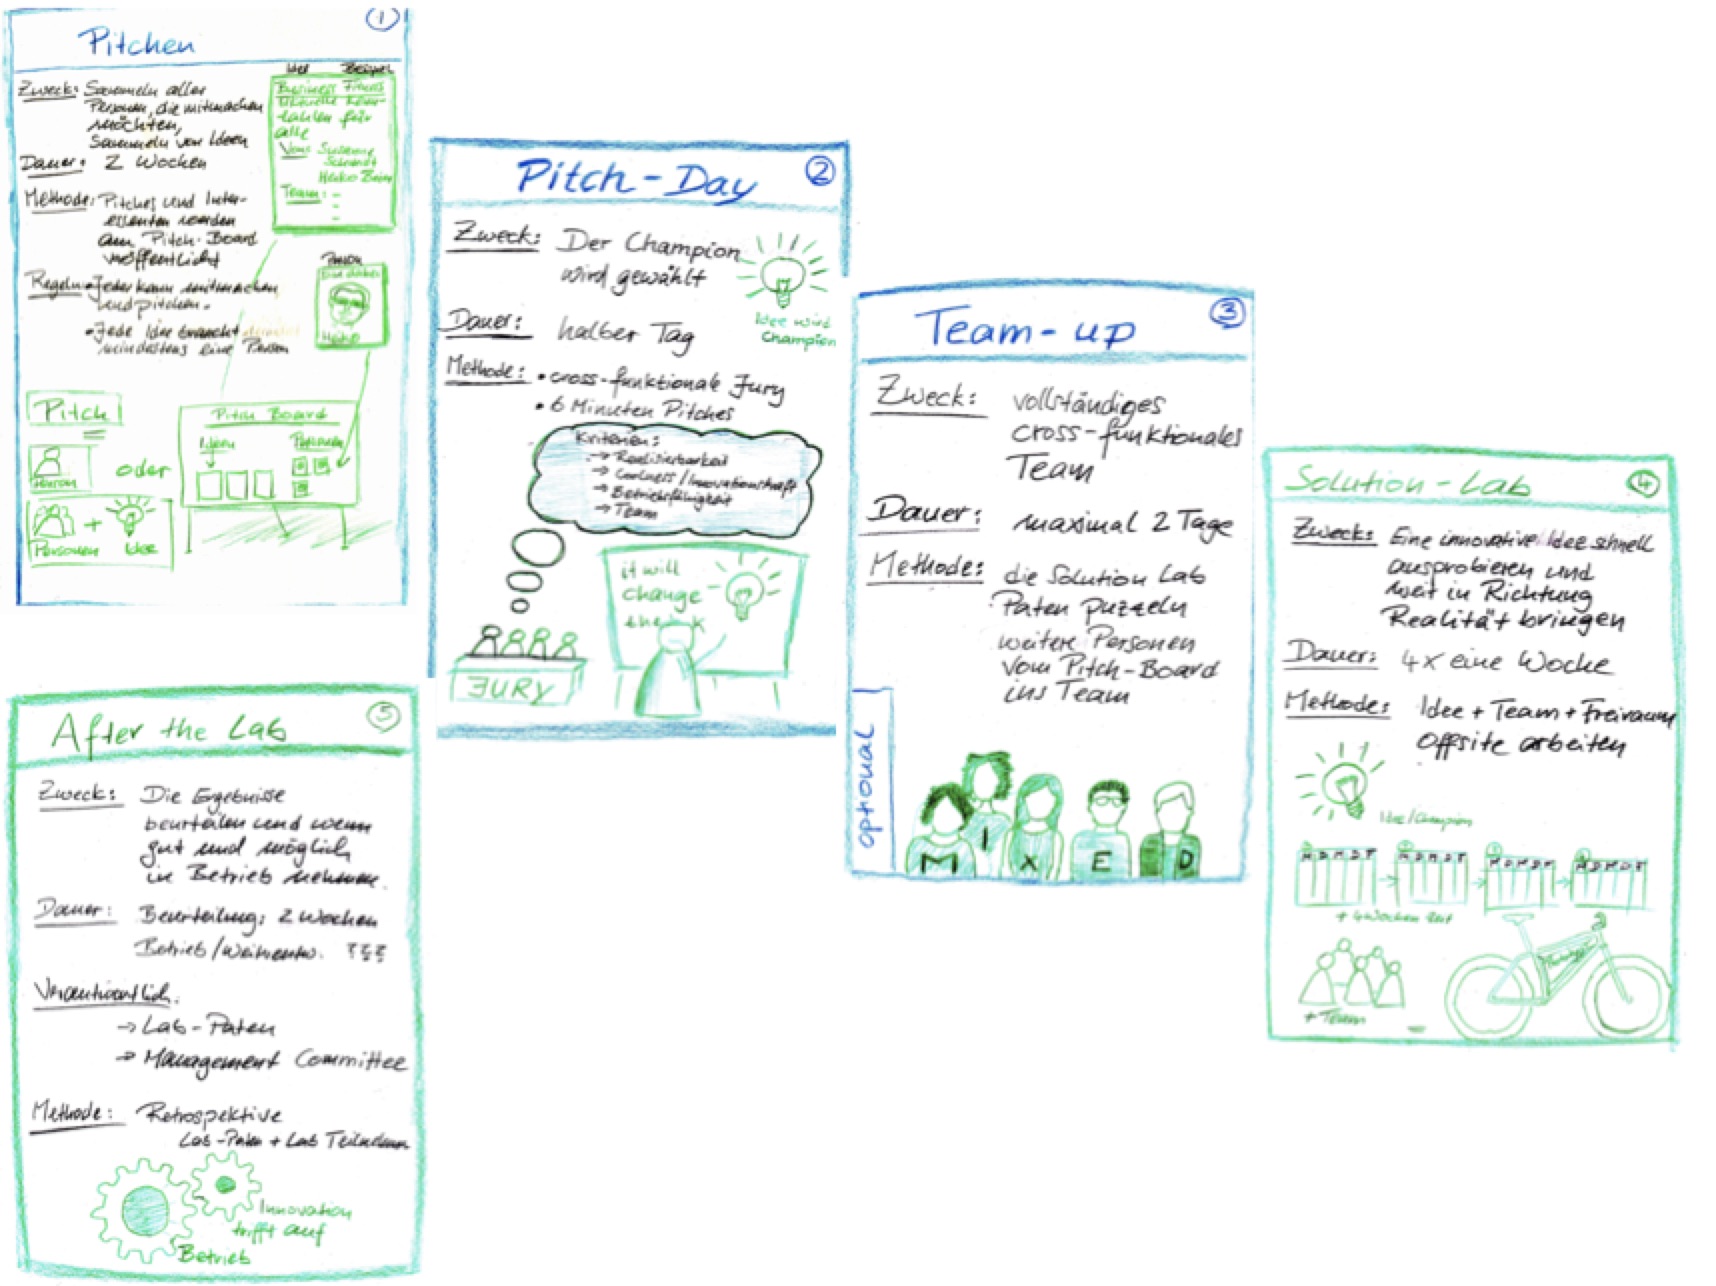 Pitchen
1
Zweck: Sammeln aller
Personen, die mitmachen
möchten,
Sammeln von Ideen
Dauer: 2 Wochen
Methode: Pitches und Inter-
essenten werden
am Pitch-Board
veröffentlicht
Regeln: • Jeder kann mitmachen
und pitchen.
• Jede Idee braucht
mindestens eine Person
Idee Beispiel
Business Fitness
Aktuelle Kenn-
zahlen für
alle
Von: Susanne
Schmidt
Heiko
Team: -
-
-
Person
Heiko
Pitch
Person
oder
Personen + Idee
Pitch Board
Ideen Personen
Pitch-Day
2
Zweck: Der Champion
wird gewählt
Idee wird
Champion
Dauer: halber Tag
Methode: • cross-funktionale Jury
• 6 Minuten Pitches
Kriterien:
→ Realisierbarkeit
→ Coolness/Innovationskraft
→ Betriebsfähigkeit
→ Team
it will
change
the
JURY
Team-up
3
Zweck: vollständiges
cross-funktionales
Team
Dauer: maximal 2 Tage
Methode: die Solution Lab
Paten puzzeln
weitere Personen
vom Pitch-Board
ins Team
optional
M I X E D
Solution-Lab
4
Zweck: Eine innovative Idee schnell
ausprobieren und
weit in Richtung
Realität bringen
Dauer: 4x eine Woche
Methode: Idee + Team + Freiraum
Offsite arbeiten
Idee/Champion
M D M D F
M D M D F
M D M D F
M D M D F
+ 4 Wochen Zeit
+ Team
After the Lab
5
Zweck: Die Ergebnisse
beurteilen und wenn
gut und möglich
in Betrieb nehmen.
Dauer: Beurteilung: 2 Wochen
Betrieb/Weiterentw. ???
Verantwortlich:
→ Lab-Paten
→ Management Committee
Methode: Retrospektive
Lab-Paten + Lab Teilnehmer
Innovation
trifft auf
Betrieb